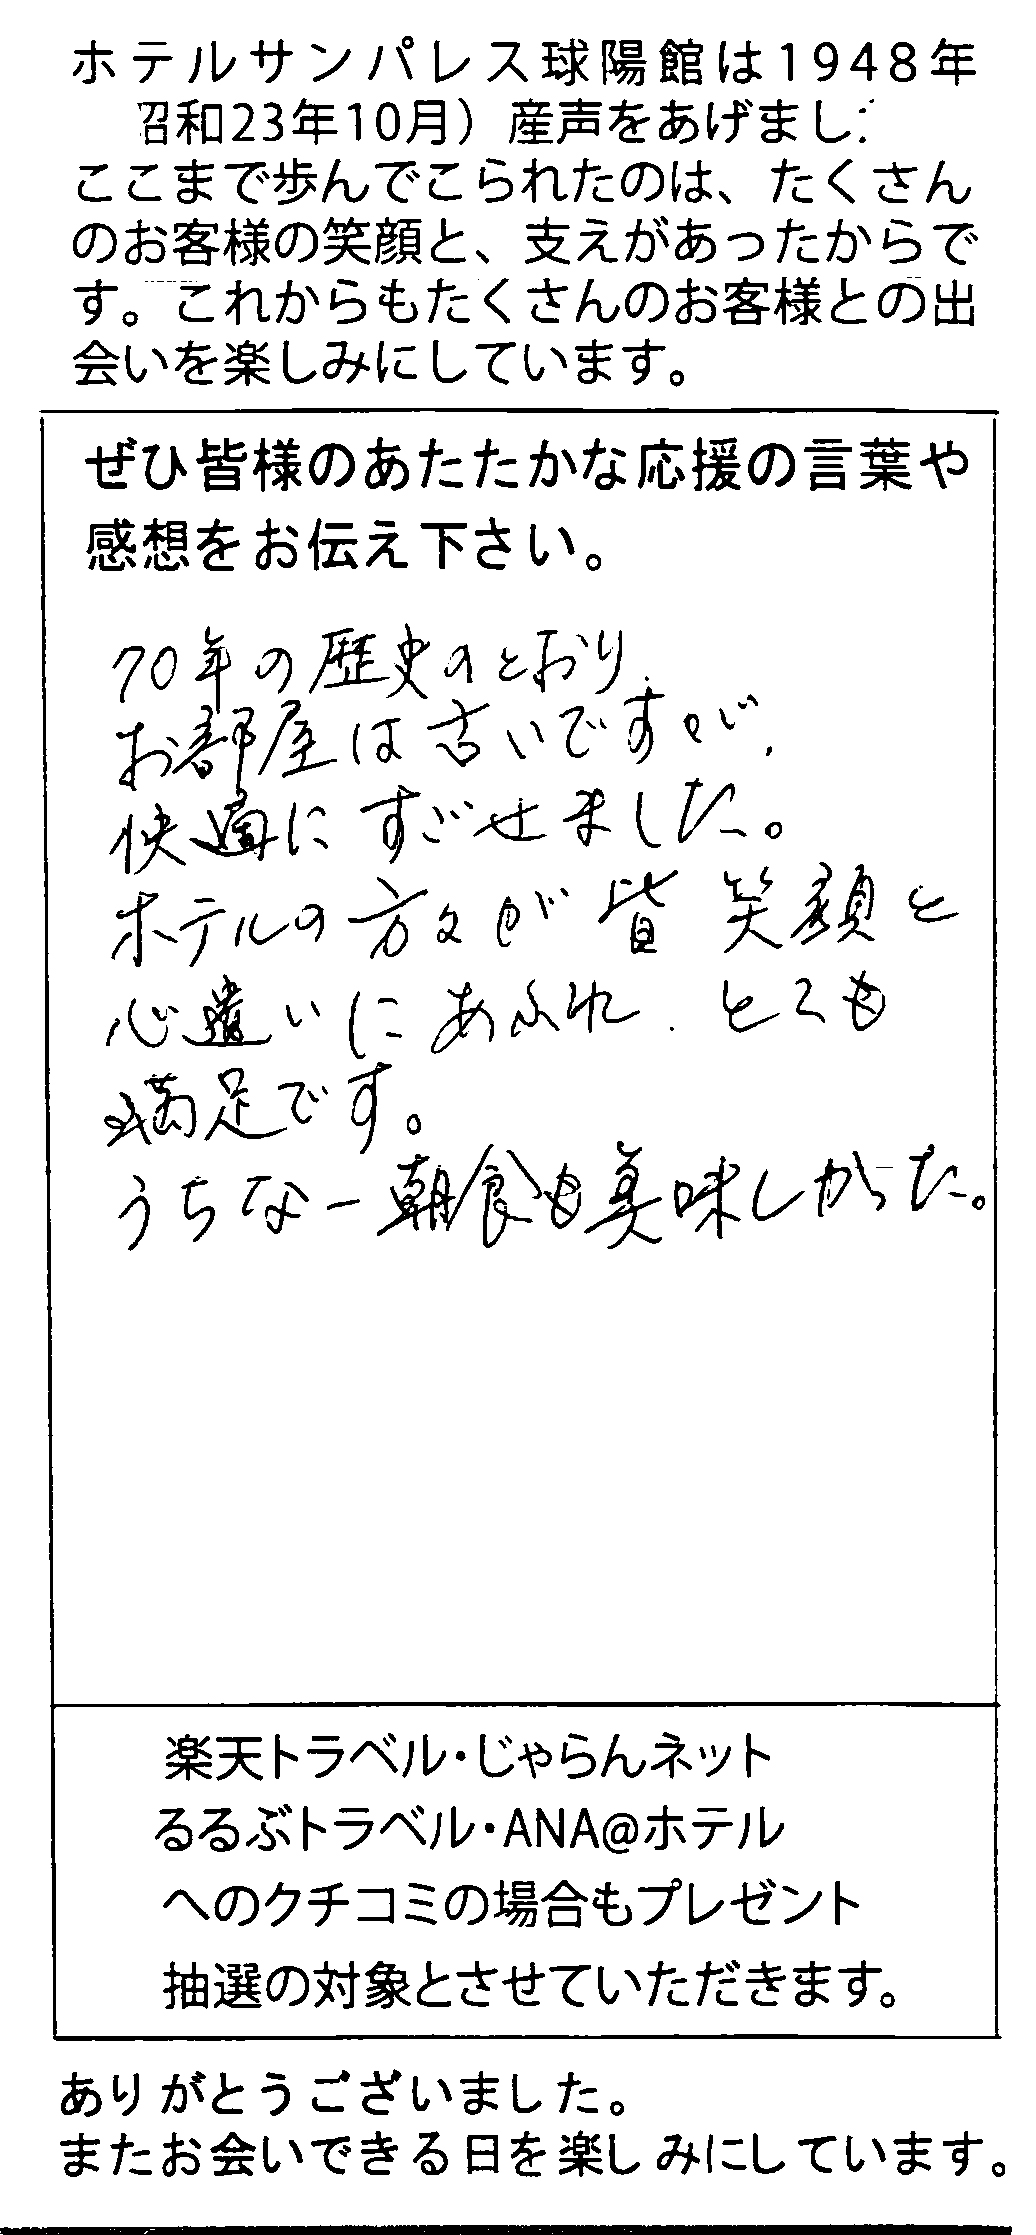 ホテルサンパレス球陽館は1948年
昭和23年10月）産声をあげまし
ここまで歩んでこられたのは、たくさん
のお客様の笑顔と、支えがあったからで
す。これからもたくさんのお客様との出
会いを楽しみにしています。
ぜひ皆様のあたたかな応援の言葉や
感想をお伝え下さい。
70年の歴史のとおり、
お部屋は古いですが、
快適にすごせました。
ホテルの方々が皆笑顔と
心遣いにあふれ、とても
満足です。
うちなー朝食も美味しかった。
楽天トラベル・じゃらんネット
るるぶトラベル・ANA@ホテル
へのクチコミの場合もプレゼント
抽選の対象とさせていただきます。
ありがとうございました。
またお会いできる日を楽しみにしています。